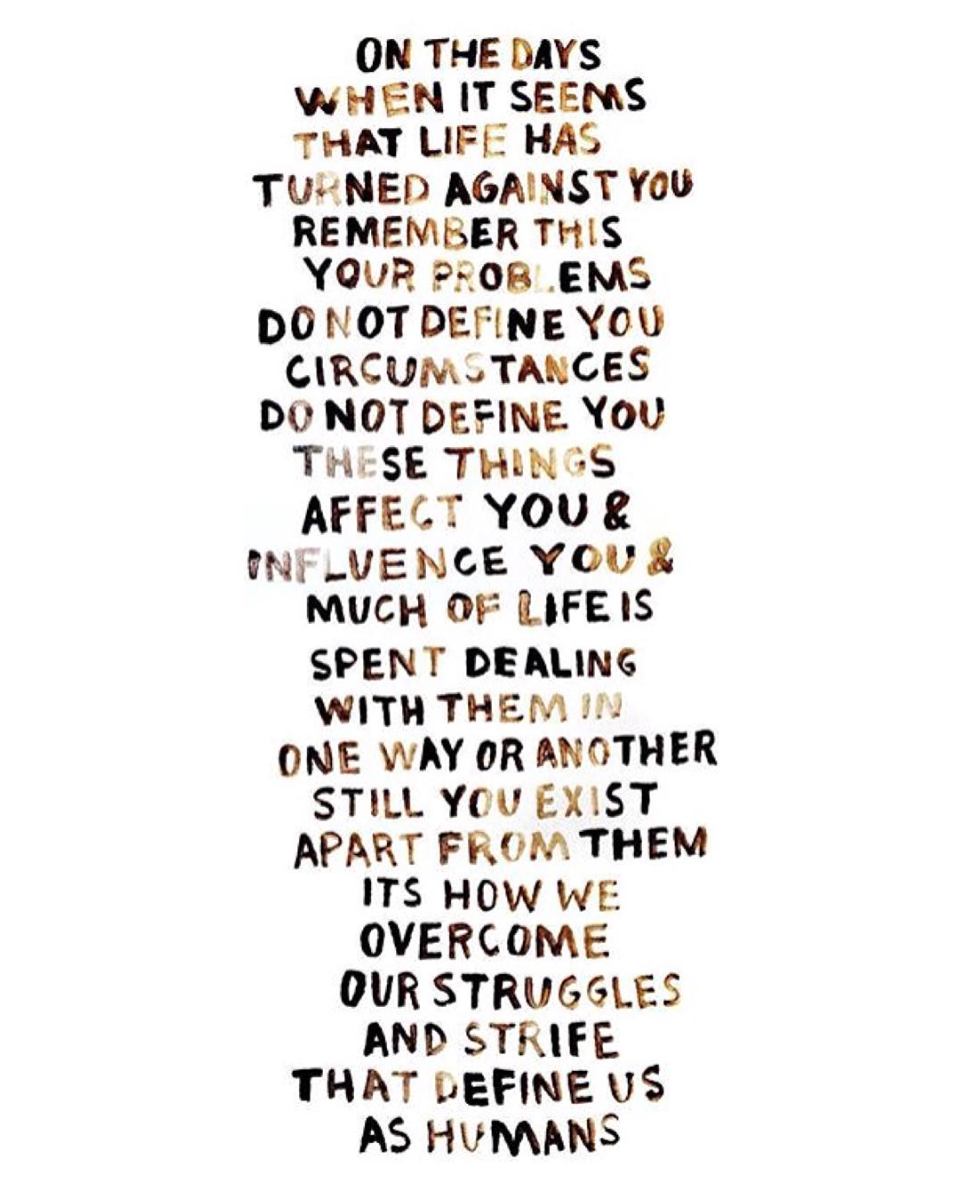 ON THE DAYS
WHEN IT SEEMS
THAT LIFE HAS
TURNED AGAINST YOU
REMEMBER THIS
YOUR PROBLEMS
DO NOT DEFINE YOU
CIRCUMSTANCES
DO NOT DEFINE YOU
THESE THINGS
AFFECT YOU &
INFLUENCE YOU &
MUCH OF LIFE IS
SPENT DEALING
WITH THEM IN
ONE WAY OR ANOTHER
STILL YOU EXIST
APART FROM THEM
ITS HOW WE
OVERCOME
OUR STRUGGLES
AND STRIFE
THAT DEFINE US
AS HUMANS